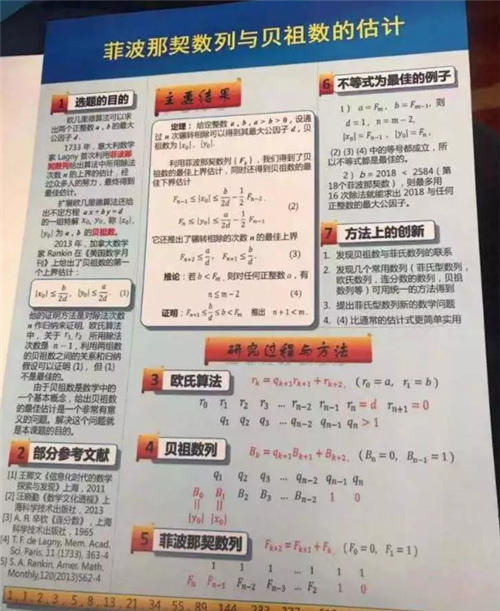 菲波那契数列与贝祖数的估计
1 选题的目的
欧几里德算法可以求
出两个正整数 a, b 的最大
公因子 d。
1733 年，意大利数学
家 Lagny 首次利用菲波那
契数列给出算法中所用除法
次数 n 的上界的估计，经
过众多人的努力，最终得到
最佳估计。
扩展欧几里德算法还给
出不定方程 ax + by = d
的一组特解 x₀, y₀，称 |x₀|,
|y₀| 为 a, b 的贝祖数。
2013 年，加拿大数学
家 Rankin 在《美国数学月
刊》上给出了贝祖数的第一
个上界估计：
|x₀| ≤ b/2d, |y₀| ≤ a/2d (1)
他的证明方法是对除法次数
n 作归纳来证明。欧氏算法
中，关于 r₁, r₂ 所用除法
次数是 n − 1，利用两组数
的贝祖数之间的关系和归纳
假设可以证明 (1)，但 (1)
不是最佳的。
由于贝祖数是数学中的
一个基本概念，给出贝祖数
的最佳估计是一个非常有意
义的问题。解决这个问题就
是本课题的目的。
2 部分参考文献
[1] 王那文《信息化时代的数学
探索与发现》上海，2011
[2] 汪晓勤《数学文化透视》上
海科学技术出版社，2013
[3] A. Я. 辛钦《连分数》，上海
科学技术出版社，1965
[4] T. F. de Lagny, Mem. Acad.
Sci. Paris, 11 (1733), 363-4
[5] S. A. Rankin, Amer. Math.
Monthly,120(2013)562-4
主要结果
定理：给定整数 a, b，a > b > 0，设通
过 n 次辗转相除可以得到其最大公因子 d，贝
祖数为 |x₀|, |y₀|。
利用菲波那契数列 {Fₖ}，我们得到了贝
祖数的最佳上界估计，同时还得到贝祖数的最
佳下界估计
Fₙ₋₁ ≤ |x₀| ≤ b/2d − 1/2 Fₙ₋₂,
(2)
Fₙ ≤ |y₀| ≤ a/2d − 1/2 Fₙ₋₁.
它还推出了辗转相除的次数 n 的最佳上界
Fₙ₊₂ ≤ a/d, Fₙ₊₁ ≤ b/d. (3)
推论：若 b < Fₘ，则对任何正整数 a，有
n ≤ m − 2 (4)
证明：Fₙ₊₁ ≤ b/d ≤ b < Fₘ 推出 n + 1 < m.
研究过程与方法
3 欧氏算法 rₖ = qₖ₊₁rₖ₊₁ + rₖ₊₂, (r₀ = a, r₁ = b)
r₀ r₁ r₂ r₃ … rₙ₋₂ rₙ₋₁ rₙ = d rₙ₊₁ = 0
q₁ q₂ q₃ … qₙ₋₂ qₙ₋₁ qₙ > 1
4 贝祖数列 Bₖ = qₖ₊₁Bₖ₊₁ + Bₖ₊₂, (Bₙ = 0, Bₙ₋₁ = 1)
q₁ q₂ q₃ … qₙ₋₂ qₙ₋₁ qₙ
B₀ B₁ B₂ B₃ … Bₙ₋₂ 1 0
|| ||
|y₀| |x₀|
5 菲波那契数列 Fₖ₊₂ = Fₖ₊₁ + Fₖ, (F₀ = 0, F₁ = 1)
1 1 1 … 1 1 1
Fₙ Fₙ₋₁ Fₙ₋₂ Fₙ₋₃ … F₂ 1 0
6 不等式为最佳的例子
1）a = Fₘ, b = Fₘ₋₁，则
d = 1, n = m − 2,
|x₀| = Fₙ₋₁, |y₀| = Fₙ.
(2) (3) (4) 中的等号都成立，所
以不等式都是最佳的。
2）b = 2018 < 2584（第
18个菲波那契数），则最多用
16 次除法就能求出 2018 与任何
正整数的最大公因子。
7 方法上的创新
1. 发现贝祖数与菲氏数列的联系
2. 发现几个常用数列（菲氏型数列，
欧氏数列，连分数的数列，贝祖
数列等）可用统一的方法得到
3. 提出菲氏型数列新的数学问题
4. (4) 比通常的估计式更简单实用
1, 1, 2, 3, 5, 8, 13, 21, 34, 55, 89, 144, 233, 377